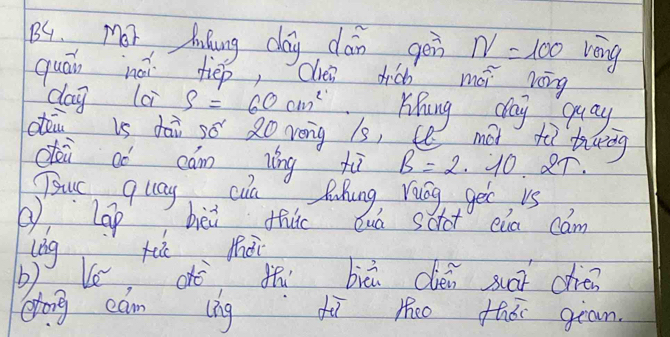 B4. Một khung dây dẫn gồm N = 100 vòng
quấn nối tiếp, diện tích mỗi vòng
dây là S = 60 cm². Khung dây quay
đều vs tần số 20 vòng /s, một từ trường
đều có cảm ứng từ B = 2. 10. 2T.
Trục quay của khung vuông góc vs
a) Lập biểu thức của sđđ của cảm
ứng tức thời
b) Vẽ đồ thị biểu diễn suất điện
động cảm ứng từ theo thời gian.